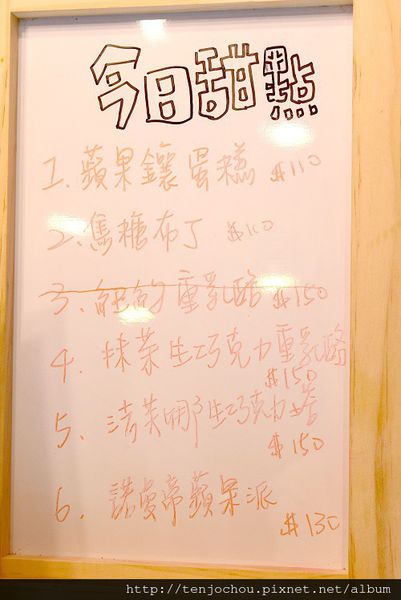 今日甜點
1. 蘋果鑲蛋糕 $110
2. 焦糖布丁 $110
3. 重乳酪 $150
4. 抹茶生巧克力重乳酪
$150
5. 法芙娜生巧克力塔
$150
6. 諾曼帝蘋果派
$130
http://tenjochou.pixnet.net/album